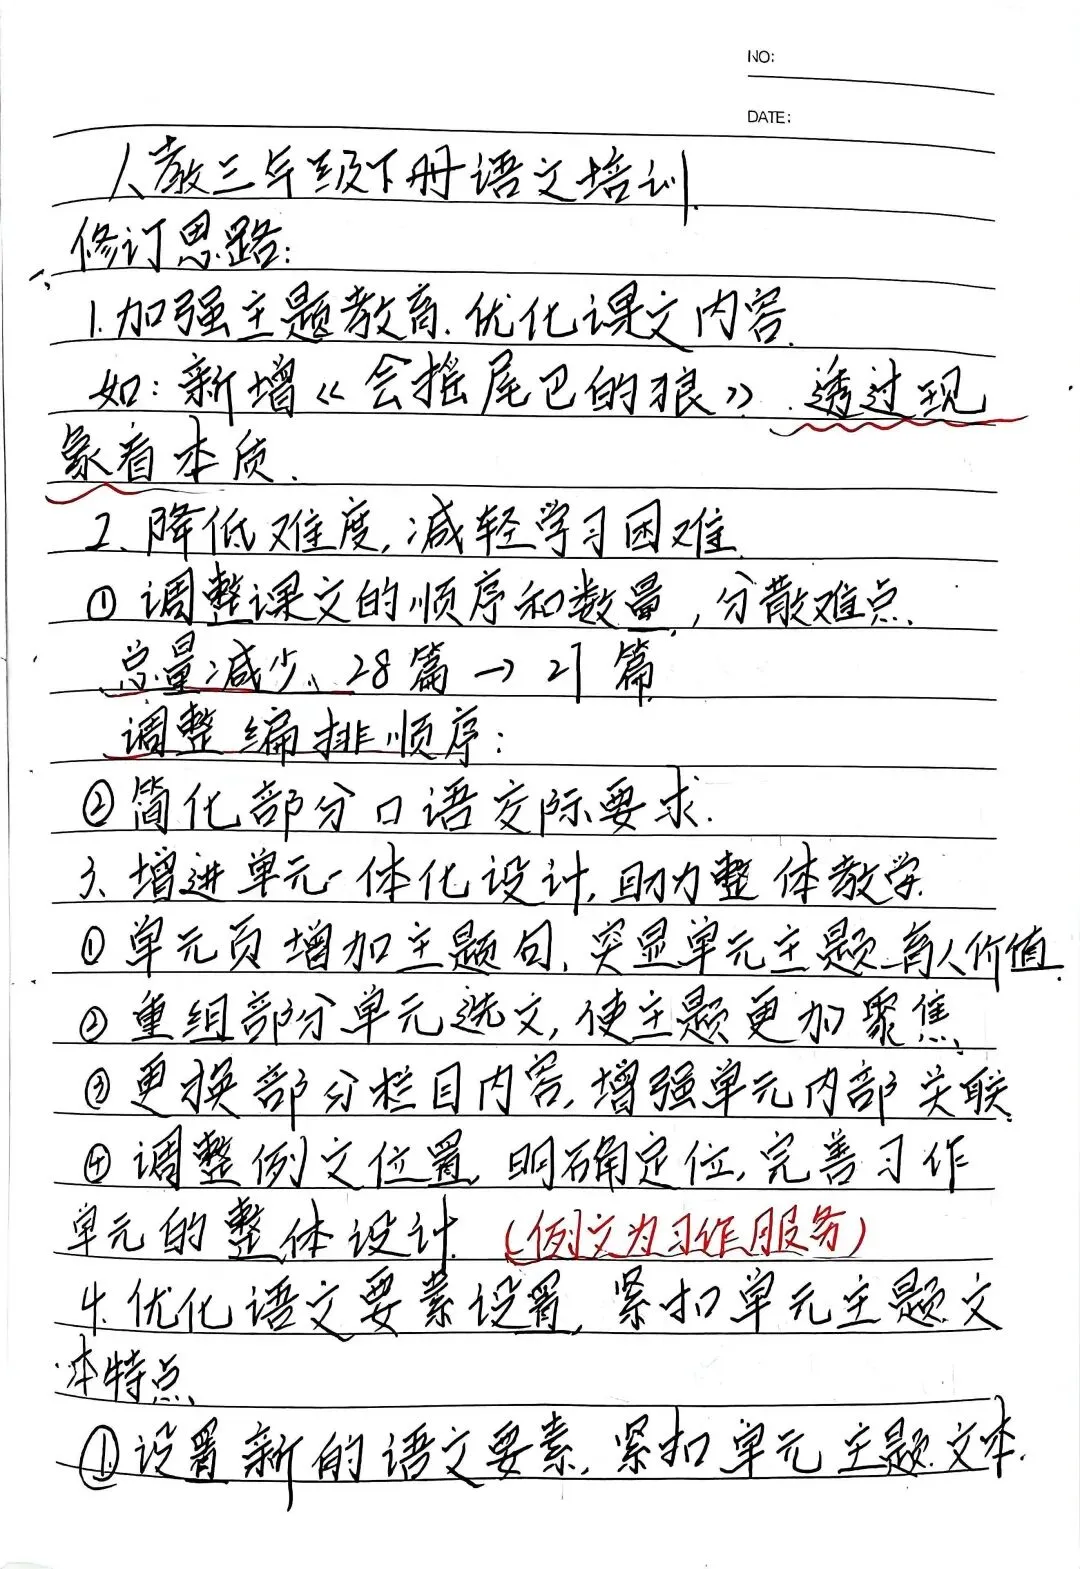 NO:
DATE:
人教三年级下册语文培训.
修订思路:
1.加强主题教育.优化课文内容.
如:新增《会摇尾巴的狼》.透过现
象看本质.
2、降低难度,减轻学习困难.
①调整课文的顺序和数量,分散难点.
总量减少、28篇→21篇
调整编排顺序:
②简化部分口语交际要求.
3、增进单元一体化设计,助力整体教学.
①单元页增加主题句,突显单元主题育人价值.
②重组部分单元选文,使主题更加聚焦.
③更换部分栏目内容,增强单元内部关联.
④调整例文位置,明确定位,完善习作
单元的整体设计.(例文为习作服务)
4.优化语文要素设置,紧扣单元主题文
本特点.
①设置新的语文要素,紧扣单元主题文本.